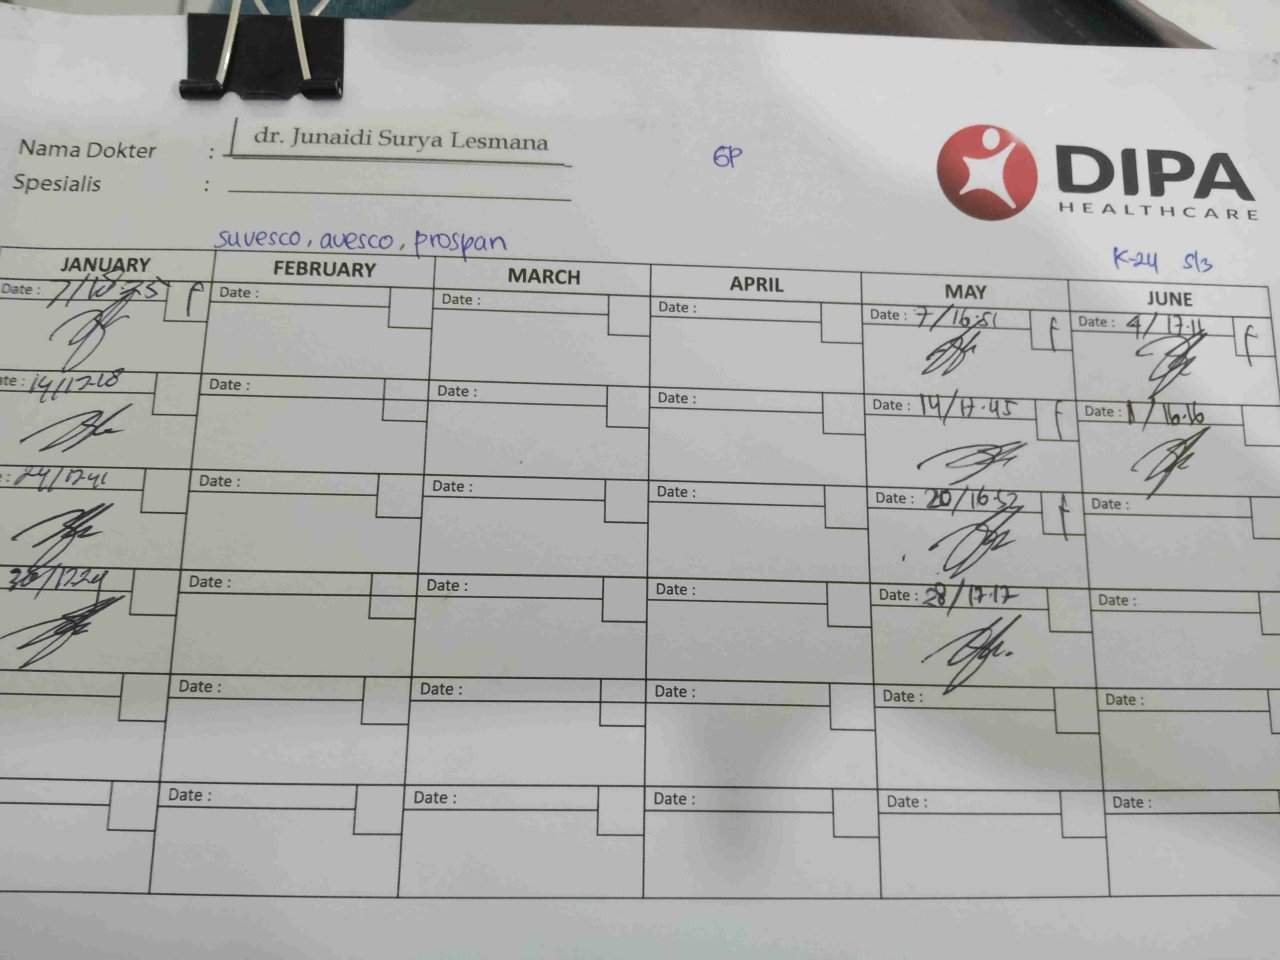 Nama Dokter : dr. Junaidi Surya Lesmana
GP
DIPA
HEALTHCARE
Spesialis :
suvesco, avesco, prospan
K-24 S/3
JANUARY FEBRUARY MARCH APRIL MAY JUNE
Date : Date : Date : Date : Date : 7/16.51 f Date : 4/17.11 f
14/17.18 Date : Date : Date : Date : 14/17.45 f Date : 1/16.16
24/17.41 Date : Date : Date : Date : 20/16.52 f Date :
Date : Date : Date : Date : 28/17.17 Date :
Date : Date : Date : Date : Date :
Date : Date : Date : Date : Date :